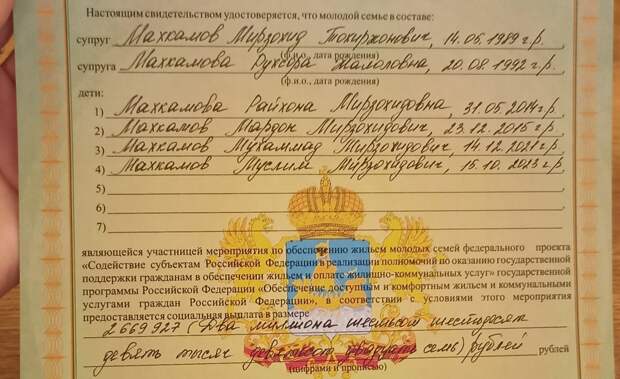 Настоящим свидетельством удостоверяется, что молодой семье в составе:
супруг Махкамов Мирзохид Тохиржонович, 14.05.1989 г.р.,
(ф.и.о., дата рождения)
супруга Махкамова Рухсора Жамоловна, 20.08.1992 г.р.
(ф.и.о., дата рождения)
дети:
1) Махкамова Райхона Мирзохидовна, 31.05.2014 г.р.,
2) Махкамов Мардон Мирзохидович, 23.12.2015 г.р.,
3) Махкамов Мухаммад Мирзохидович, 14.12.2021 г.р.,
4) Махкамов Муслим Мирзохидович, 15.10.2023 г.р.,
5) ,
6) ,
7) ,
являющейся участницей мероприятия по обеспечению жильем молодых семей федерального проекта
«Содействие субъектам Российской Федерации в реализации полномочий по оказанию государственной
поддержки гражданам в обеспечении жильем и оплате жилищно-коммунальных услуг» государственной
программы Российской Федерации «Обеспечение доступным и комфортным жильем и коммунальными
услугами граждан Российской Федерации», в соответствии с условиями этого мероприятия
предоставляется социальная выплата в размере
2 669 927 (Два миллиона шестьсот шестьдесят
девять тысяч девятьсот двадцать семь) рублей рублей
(цифрами и прописью)